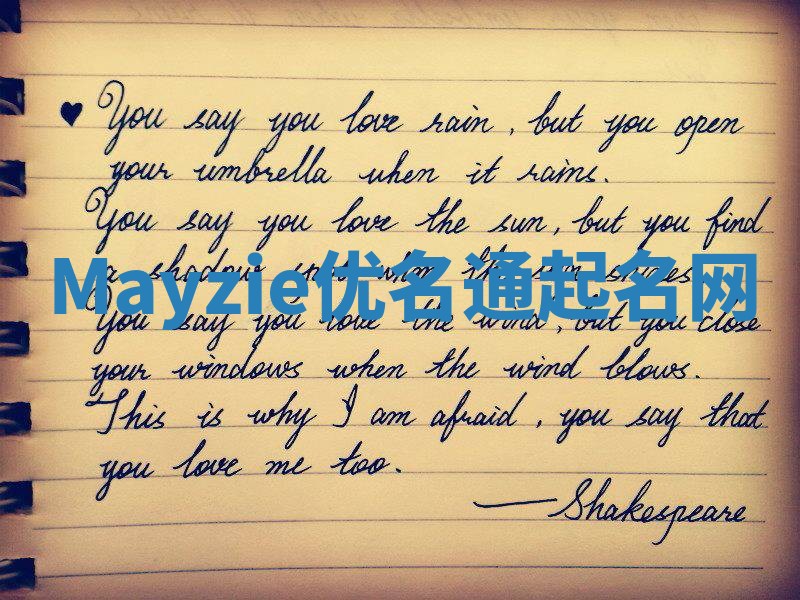 ♥ You say you love rain, but you open
your umbrella when it rains.
You say you love the sun, but you find
a shadow spot when the sun shines.
Mayzie优名通起名网
You say you love the wind, but you close
your windows when the wind blows.
This is why I am afraid, you say that
you love me too.
—Shakespeare